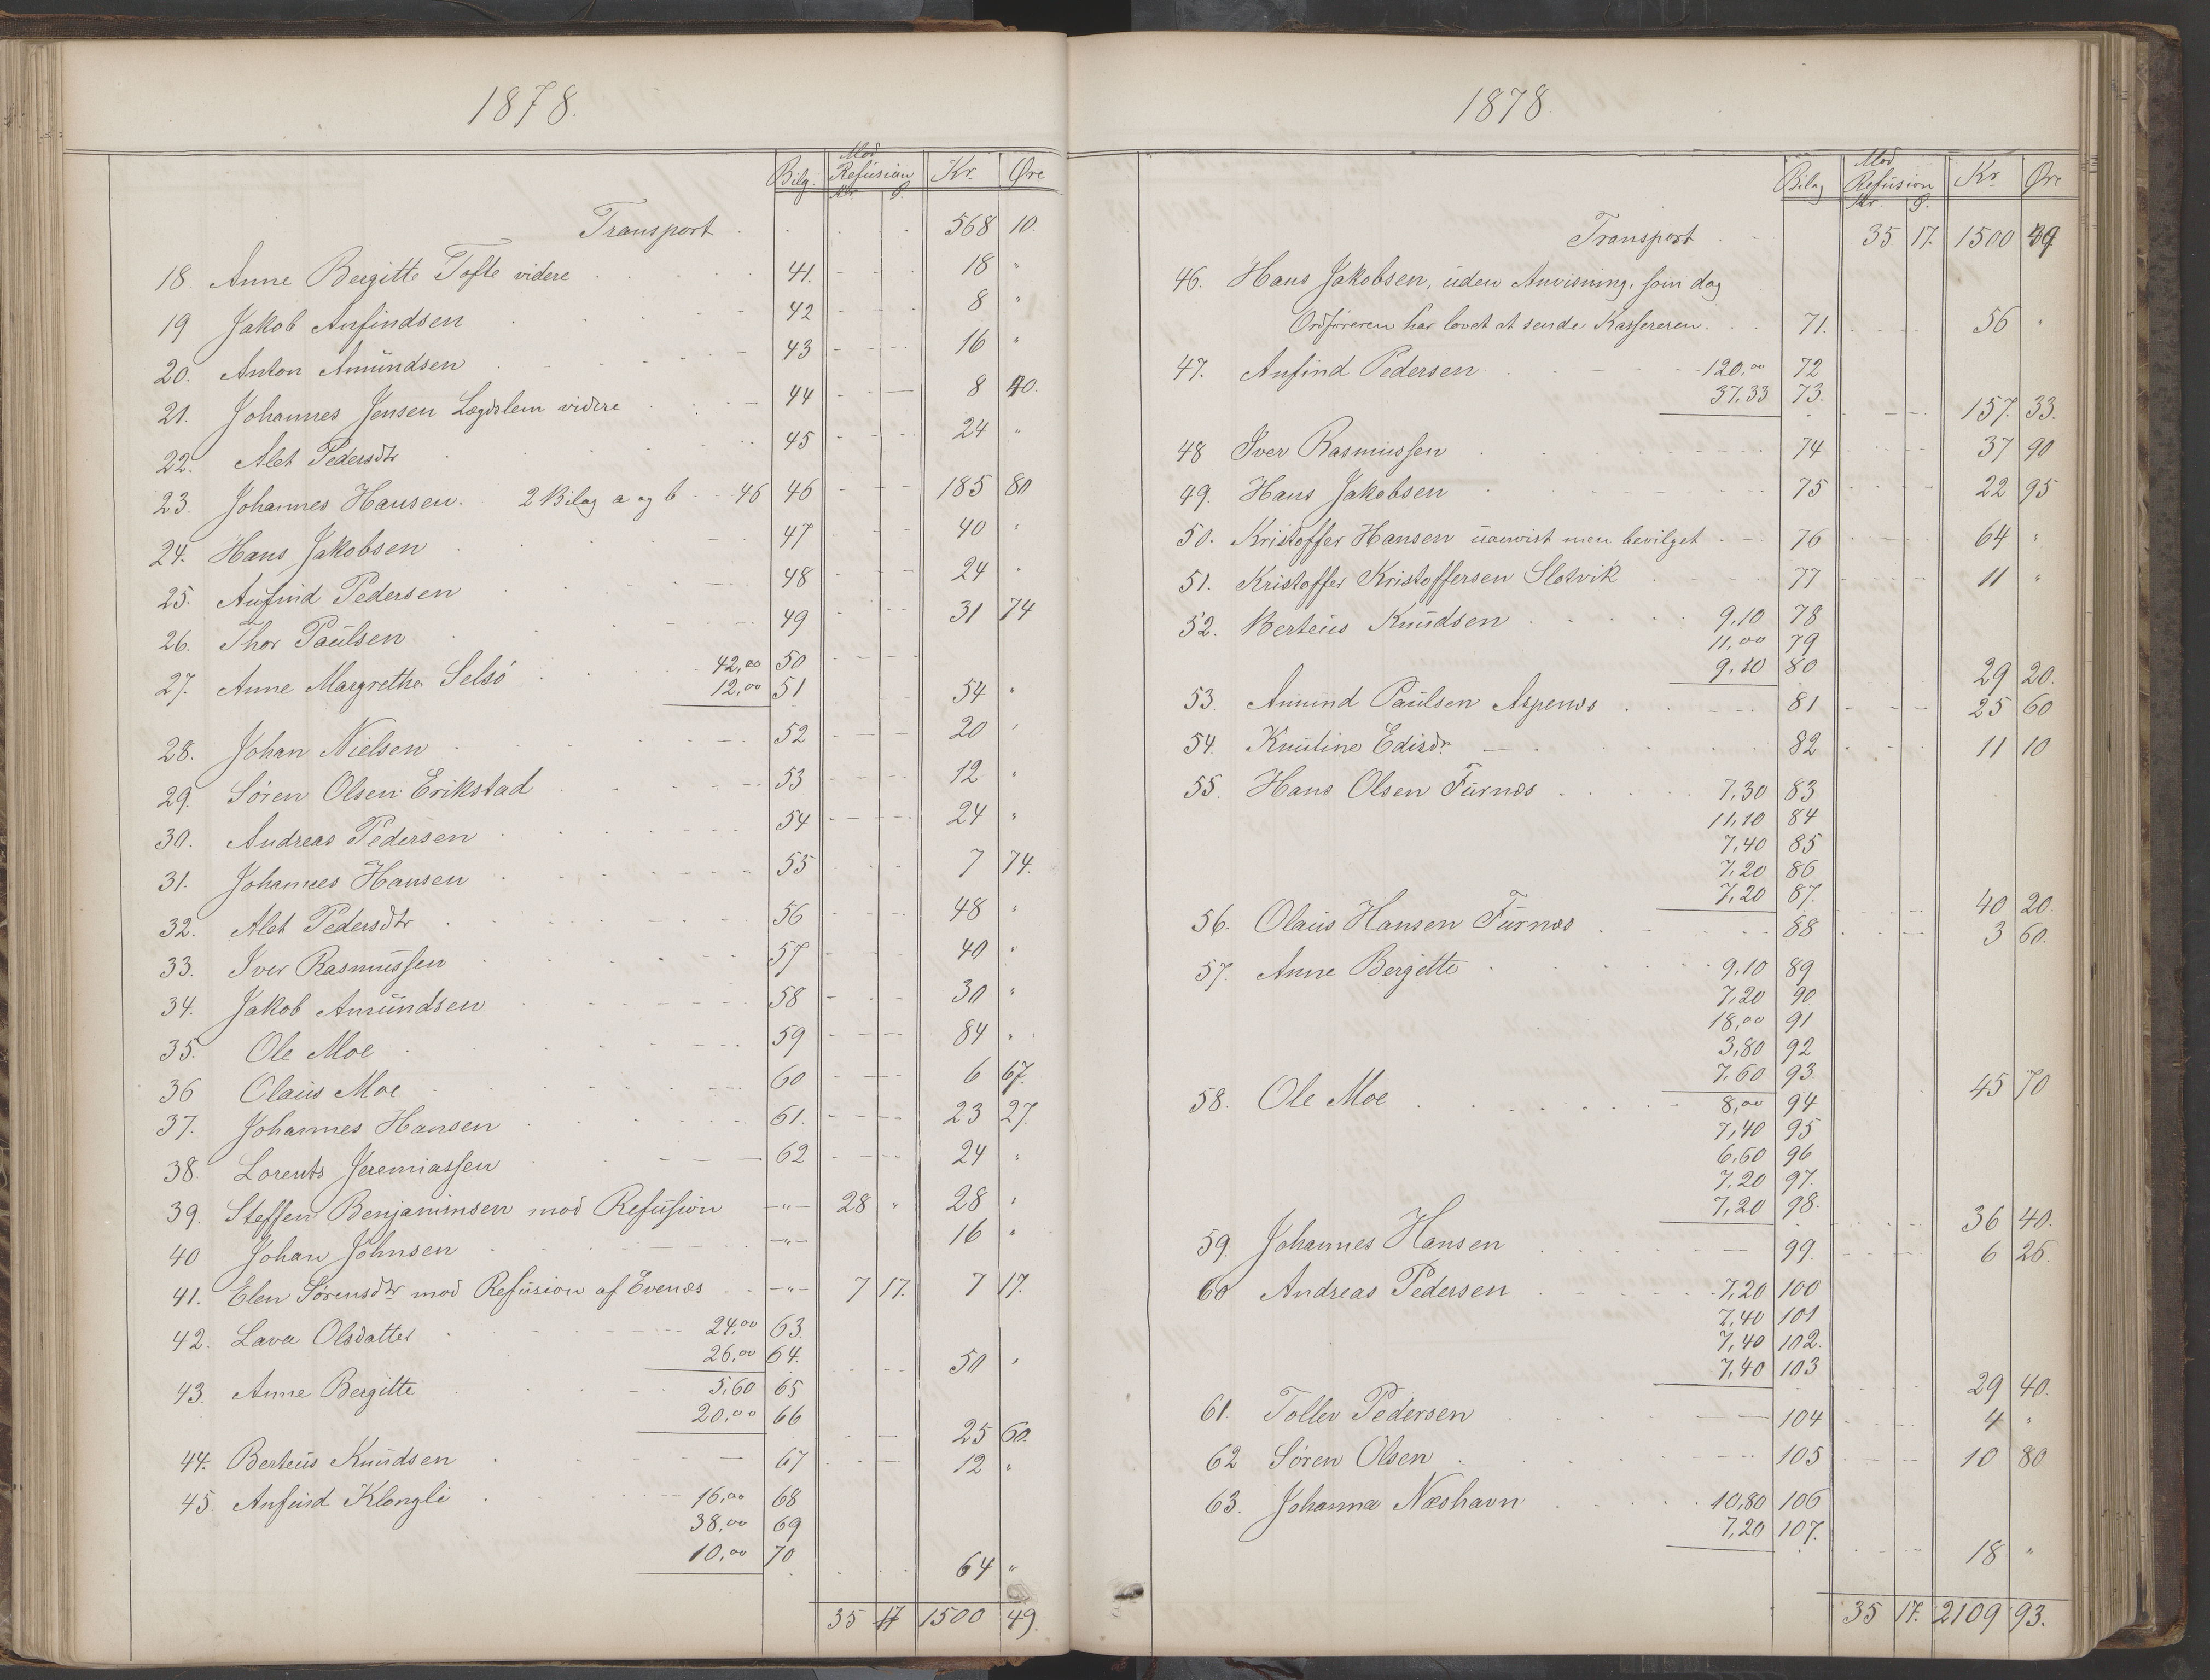 1878.
Bilg. Mod Refusion Kr. Ø. Kr. Øre
Transport 568 10.
18. Anne Bergitte Tofte videre 41. 18 "
19 Jakob Anfindsen 42 8 "
20. Anton Amundsen 43 16 "
21. Johannes Jensen Lægdslem videre 44 8 40.
22. Alet Pedersdtr 45 24 "
23. Johannes Hansen. 2 Bilag a og b 46 46 185 80
24. Hans Jakobsen 47 40 "
25. Anfind Pedersen 48 24 "
26. Thor Paulsen 49 31 74
27. Anne Margrethe Selsö 42,00 50
12,00 51 54 "
28. Johan Nielsen 52 20 "
29. Sören Olsen Erikstad 53 12 "
30. Andreas Pedersen 54 24 "
31. Johannes Hansen 55 7 74.
32. Alet Pedersdtr 56 48 "
33. Iver Rasmussen 57 40 "
34. Jakob Amundsen 58 30 "
35. Ole Moe 59 84 "
36 Olaus Moe 60 6 67.
37. Johannes Hansen 61. 23 27.
38. Lorents Jeremiassen 62 24 "
39. Steffen Benjaminsen mod Refusion —"— 28 " 28 "
40 Johan Johnsen —"— 16 "
41. Elen Sørensdtr mod Refusion af Evenæs —"— 7 17. 7 17.
42. Lava Olsdatter 24,00 63
26,00 64. 50 "
43. Anne Bergitte 5,60 65
20,00 66 25 60.
44. Berteus Knudsen 67 12 "
45. Anfind Klongli 16,00 68
38,00 69
10,00 70 64 "
35 17 1500 49.
1878.
Bilag Mod Refusion Kr. Ø. Kr. Øre
Transport 35 17. 1500 49
46. Hans Jakobsen, uden Anvisning, som dog
Ordføreren har lovet at sende Kassereren. 71. 56 "
47. Anfind Pedersen 120,00 72
37,33 73. 157. 33.
48 Iver Rasmussen 74 37 90
49. Hans Jakobsen 75 22 95
50. Kristoffer Hansen uanvist men bevilget 76 64 "
51. Kristoffer Kristoffersen Slotvik 77 11 "
52. Berteus Knudsen 9,10 78
11,00 79
9,10 80 29 20.
53. Amund Paulsen Aspenes 81 25 60
54. Knutine Edisdr. 82 11 10
55. Hans Olsen Furnæs 7,30 83
11,10 84
7,40 85
7,20 86
7,20 87. 40 20.
56. Olaus Hansen Furnæs 88 3 60.
57. Anne Bergette 9,10 89
7,20 90
18,00 91
3,80 92
7,60 93. 45 70
58. Ole Moe 8,00 94
7,40 95
6,60 96
7,20 97.
7,20 98. 36 40.
59. Johannes Hansen 99. 6 26.
60 Andreas Pedersen 7,20 100
7,40 101
7,40 102.
7,40 103 29 40.
61. Tollev Pedersen 104 4 "
62 Sören Olsen 105 10 80
63. Johanna Næshavn 10,80 106
7,20 107. 18 "
35 17. 2109 93.